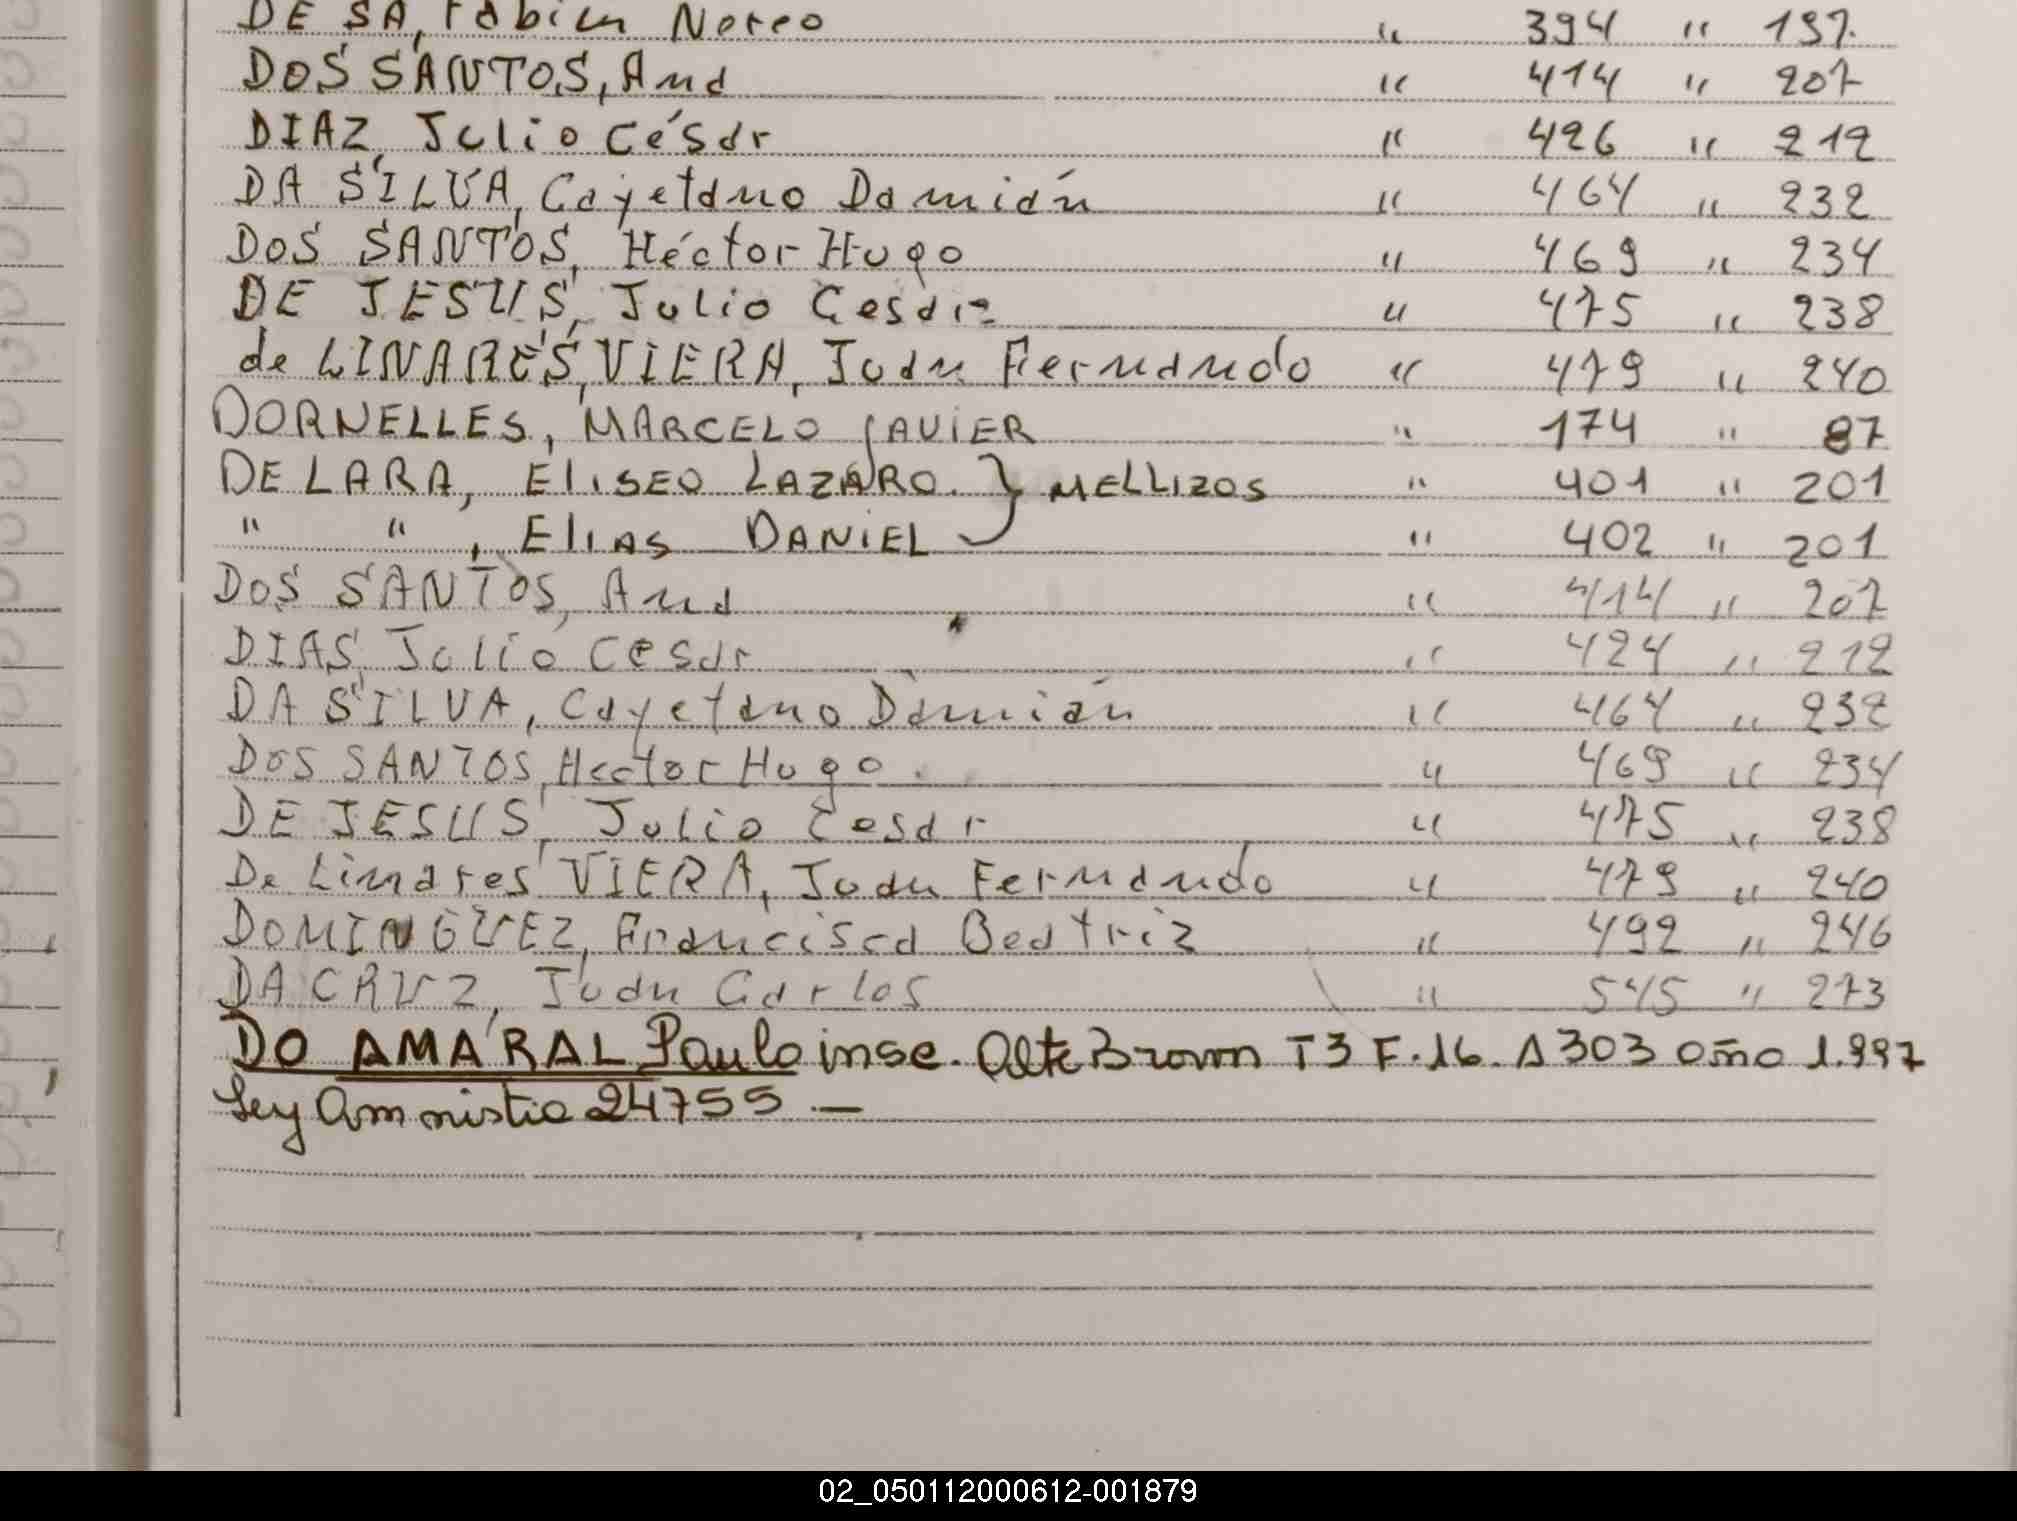 DE SA, Fabian Nereo " 394 " 197.
DOS SANTOS, Ana " 414 " 207
DIAZ, Julio César " 426 " 212
DA SILVA, Cayetano Damián " 464 " 232
DOS SANTOS, Héctor Hugo " 469 " 234
DE JESUS, Julio Cesar " 475 " 238
de LINARES, VIERA, Juan Fernando " 479 " 240
DORNELLES, MARCELO JAVIER " 174 " 87
DE LARA, ELISEO LAZARO. } MELLIZOS " 401 " 201
" " , ELIAS DANIEL " 402 " 201
DOS SANTOS, Ana " 414 " 207
DIAS, Julio Cesar " 424 " 212
DA SILVA, Cayetano Damián " 464 " 232
DOS SANTOS, Hector Hugo. " 469 " 234
DE JESUS, Julio Cesar " 475 " 238
De Linares VIERA, Juan Fernando " 479 " 240
DOMINGUEZ, Francisca Beatriz " 492 " 246
DA CRUZ, Juan Carlos " 545 " 273
DO AMARAL Paulo insc. Alte Brown T3 F.16. A 303 año 1.997
Ley Amnistia 24755.—
02_050112000612-001879